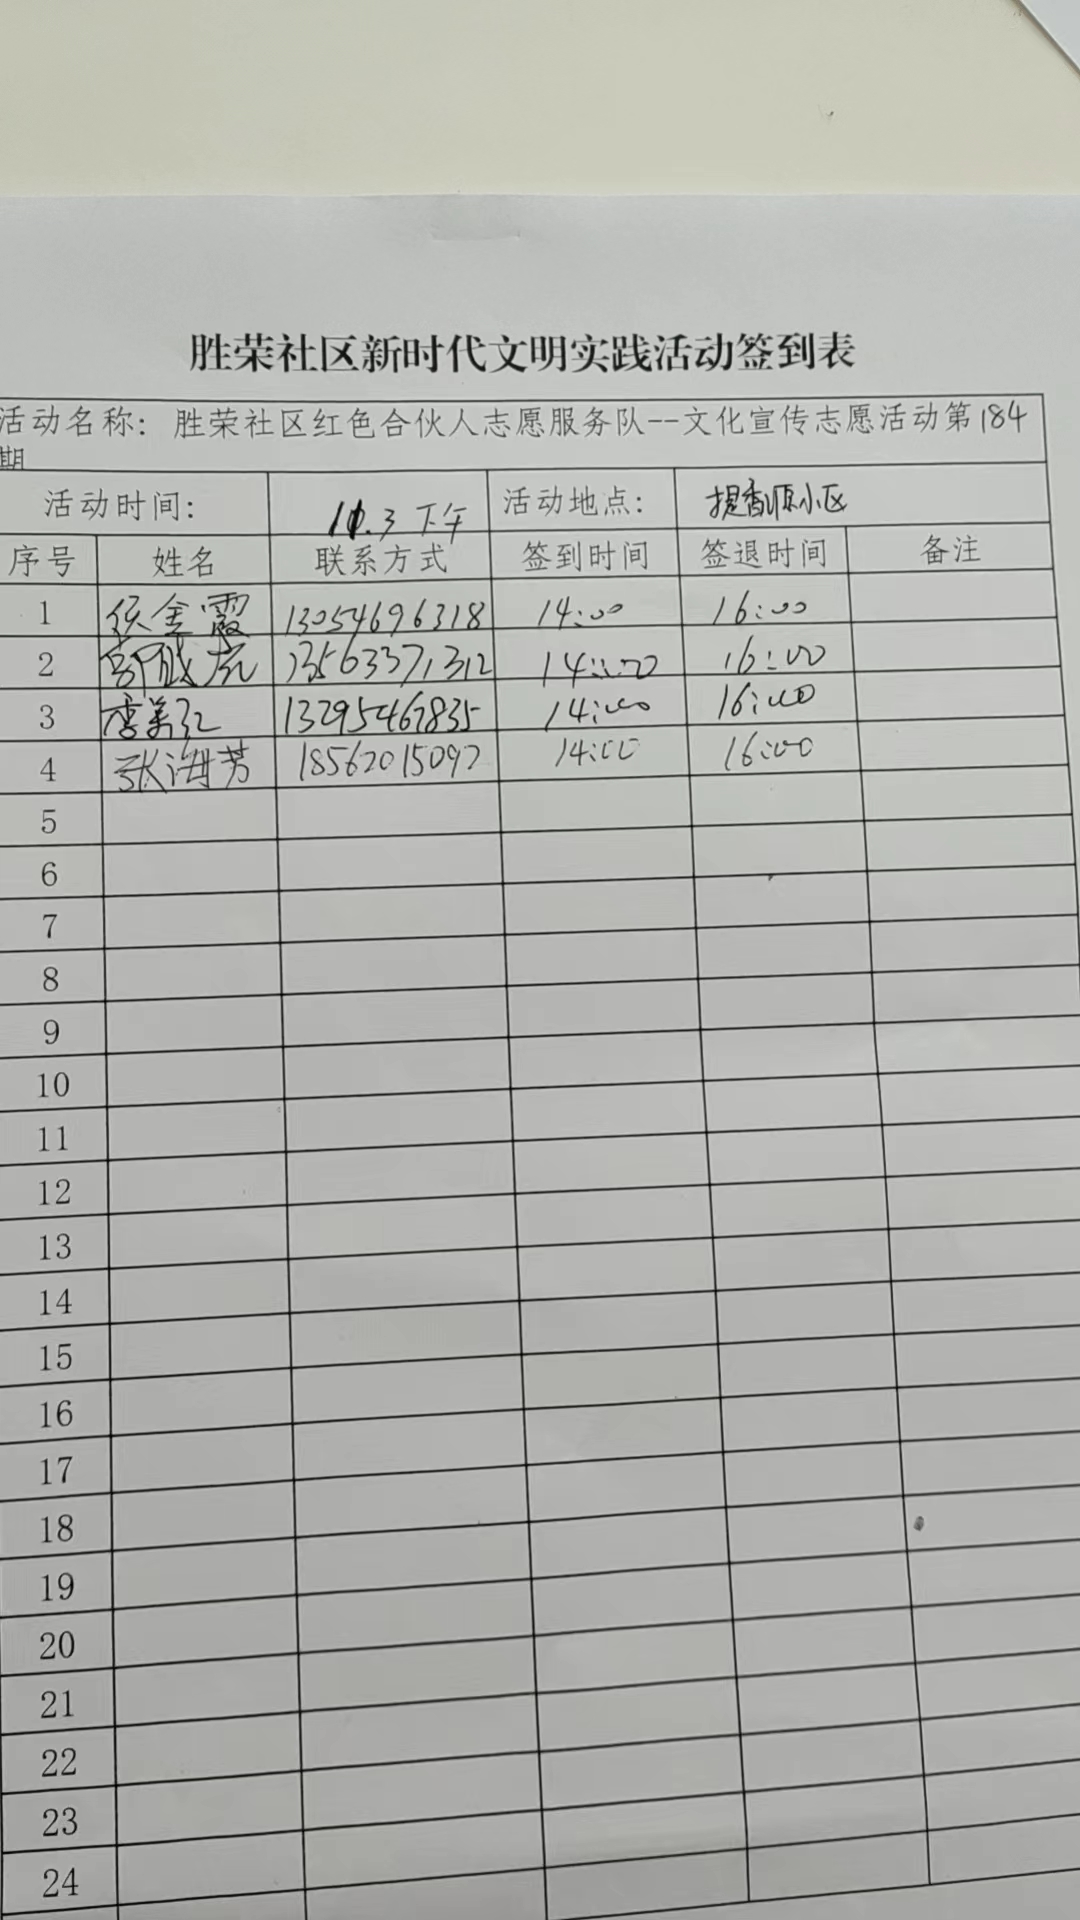 胜荣社区新时代文明实践活动签到表
活动名称：胜荣社区红色合伙人志愿服务队--文化宣传志愿活动第184
期
活动时间： 11.3 下午 活动地点： 提香源小区
序号 姓名 联系方式 签到时间 签退时间 备注
1 金霞 13054696318 14:00 16:00
2 13563371312 14:00 16:00
3 李美红 13295467835 14:00 16:00
4 张海芳 18562015092 14:00 16:00
5
6
7
8
9
10
11
12
13
14
15
16
17
18
19
20
21
22
23
24